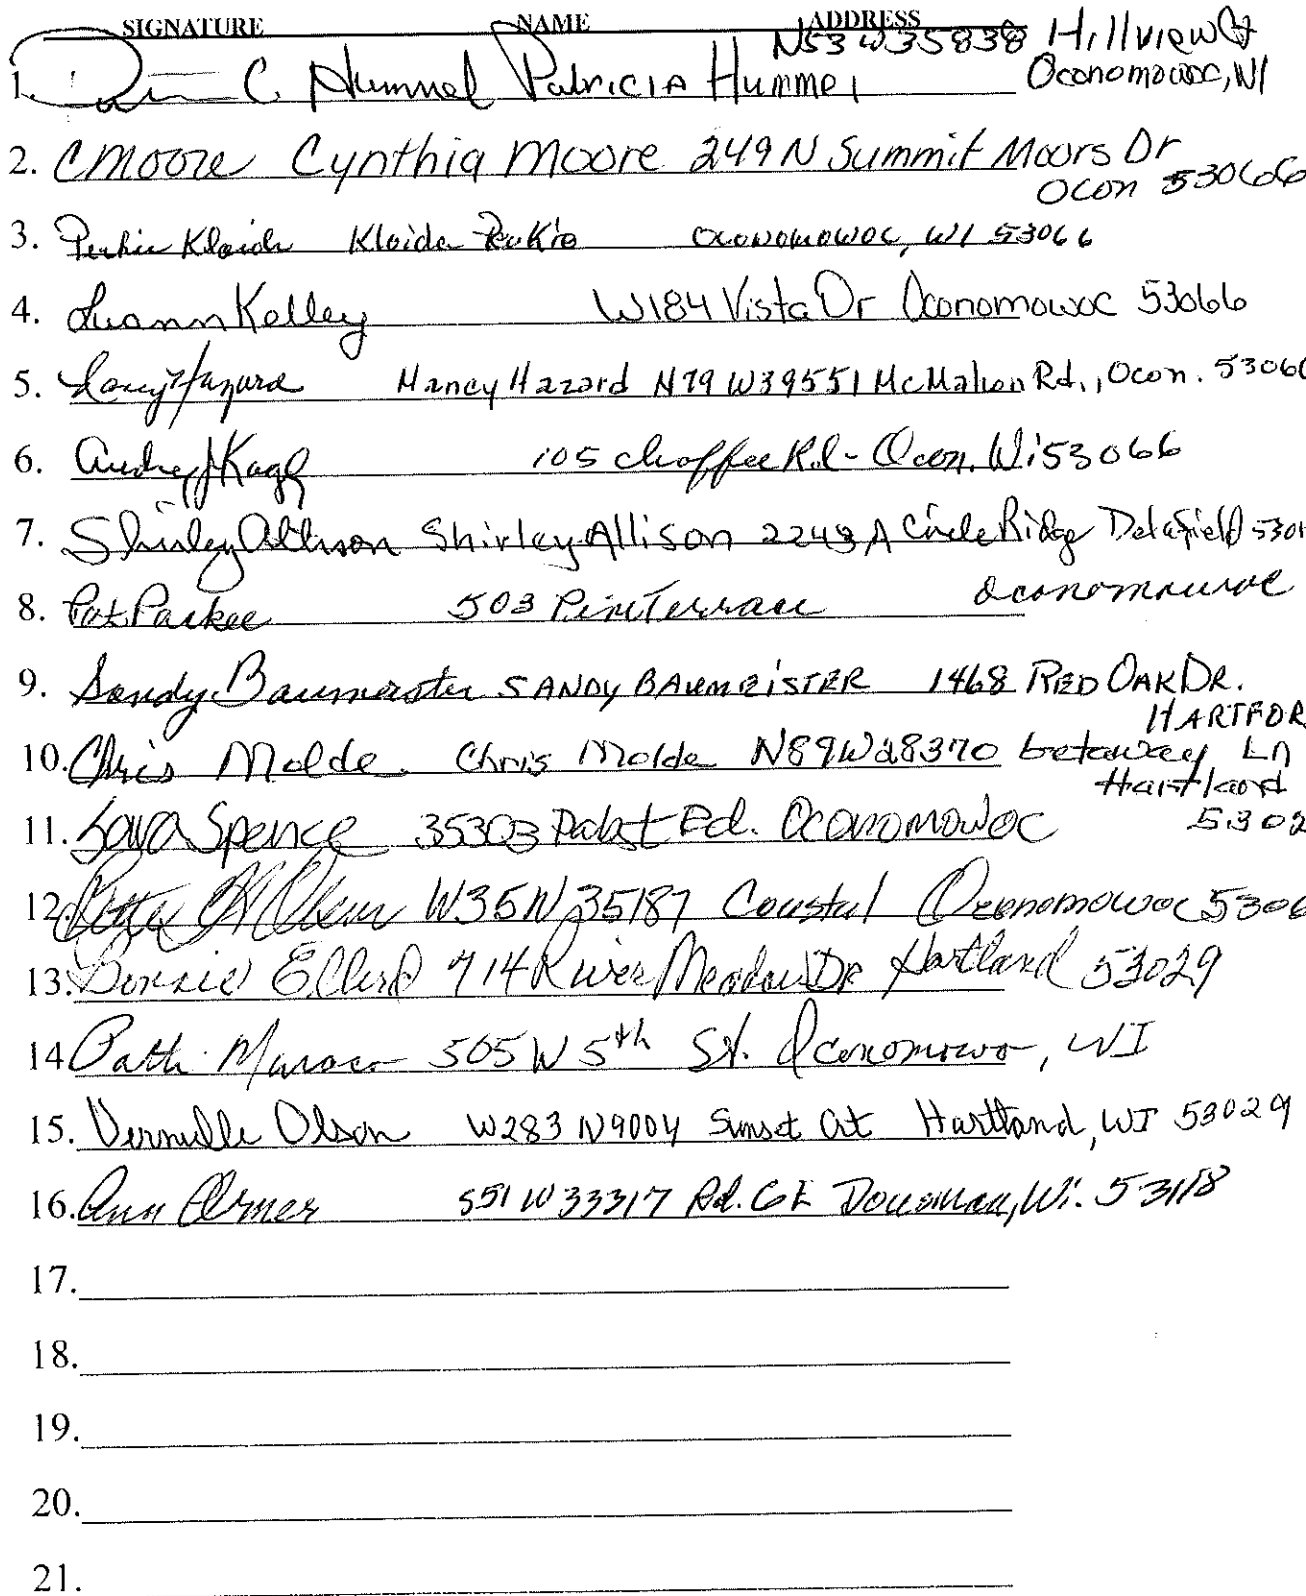 SIGNATURE NAME ADDRESS
1. C. Hummel Patricia Hummel N53W35838 Hillview Ct
Oconomowoc, WI
2. CMoore Cynthia Moore 249 N Summit Moors Dr
Ocon 53066
3. Kloida Oconomowoc, WI 53066
4. Luann Kelley W184 Vista Dr Oconomowoc 53066
5. Hazard Nancy Hazard N79 W39551 McMahon Rd., Ocon. 5306
6. 105 Chaffee Rd - Ocon. Wi 53066
7. Shirley Allison Shirley Allison 2243 A Circle Ridge Delafield 530
8. Pat Parker 503 Pine Terrace Oconomowoc
9. Sandy Baumeister SANDY BAUMEISTER 1468 RED OAK DR.
HARTFOR
10. Chris Molde Chris Molde N89W28370 Getaway Ln
Hartland
11. Spence 35303 Pabst Rd. Oconomowoc 5302
12. W35N35187 Coastal Oconomowoc 5306
13. Bonnie 714 River Meadow DR Hartland 53029
14. 505 W 5th St. Oconomowo, WI
15. Olson W283 N9004 Sunset Crt Hartland, WI 53029
16. Ann S51 W33317 Rd. GE Dousman, Wi. 53118
17.
18.
19.
20.
21.